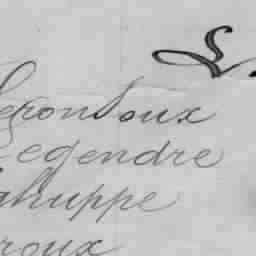 L.
Lerondoux
Legendre
Lahuppe
roux